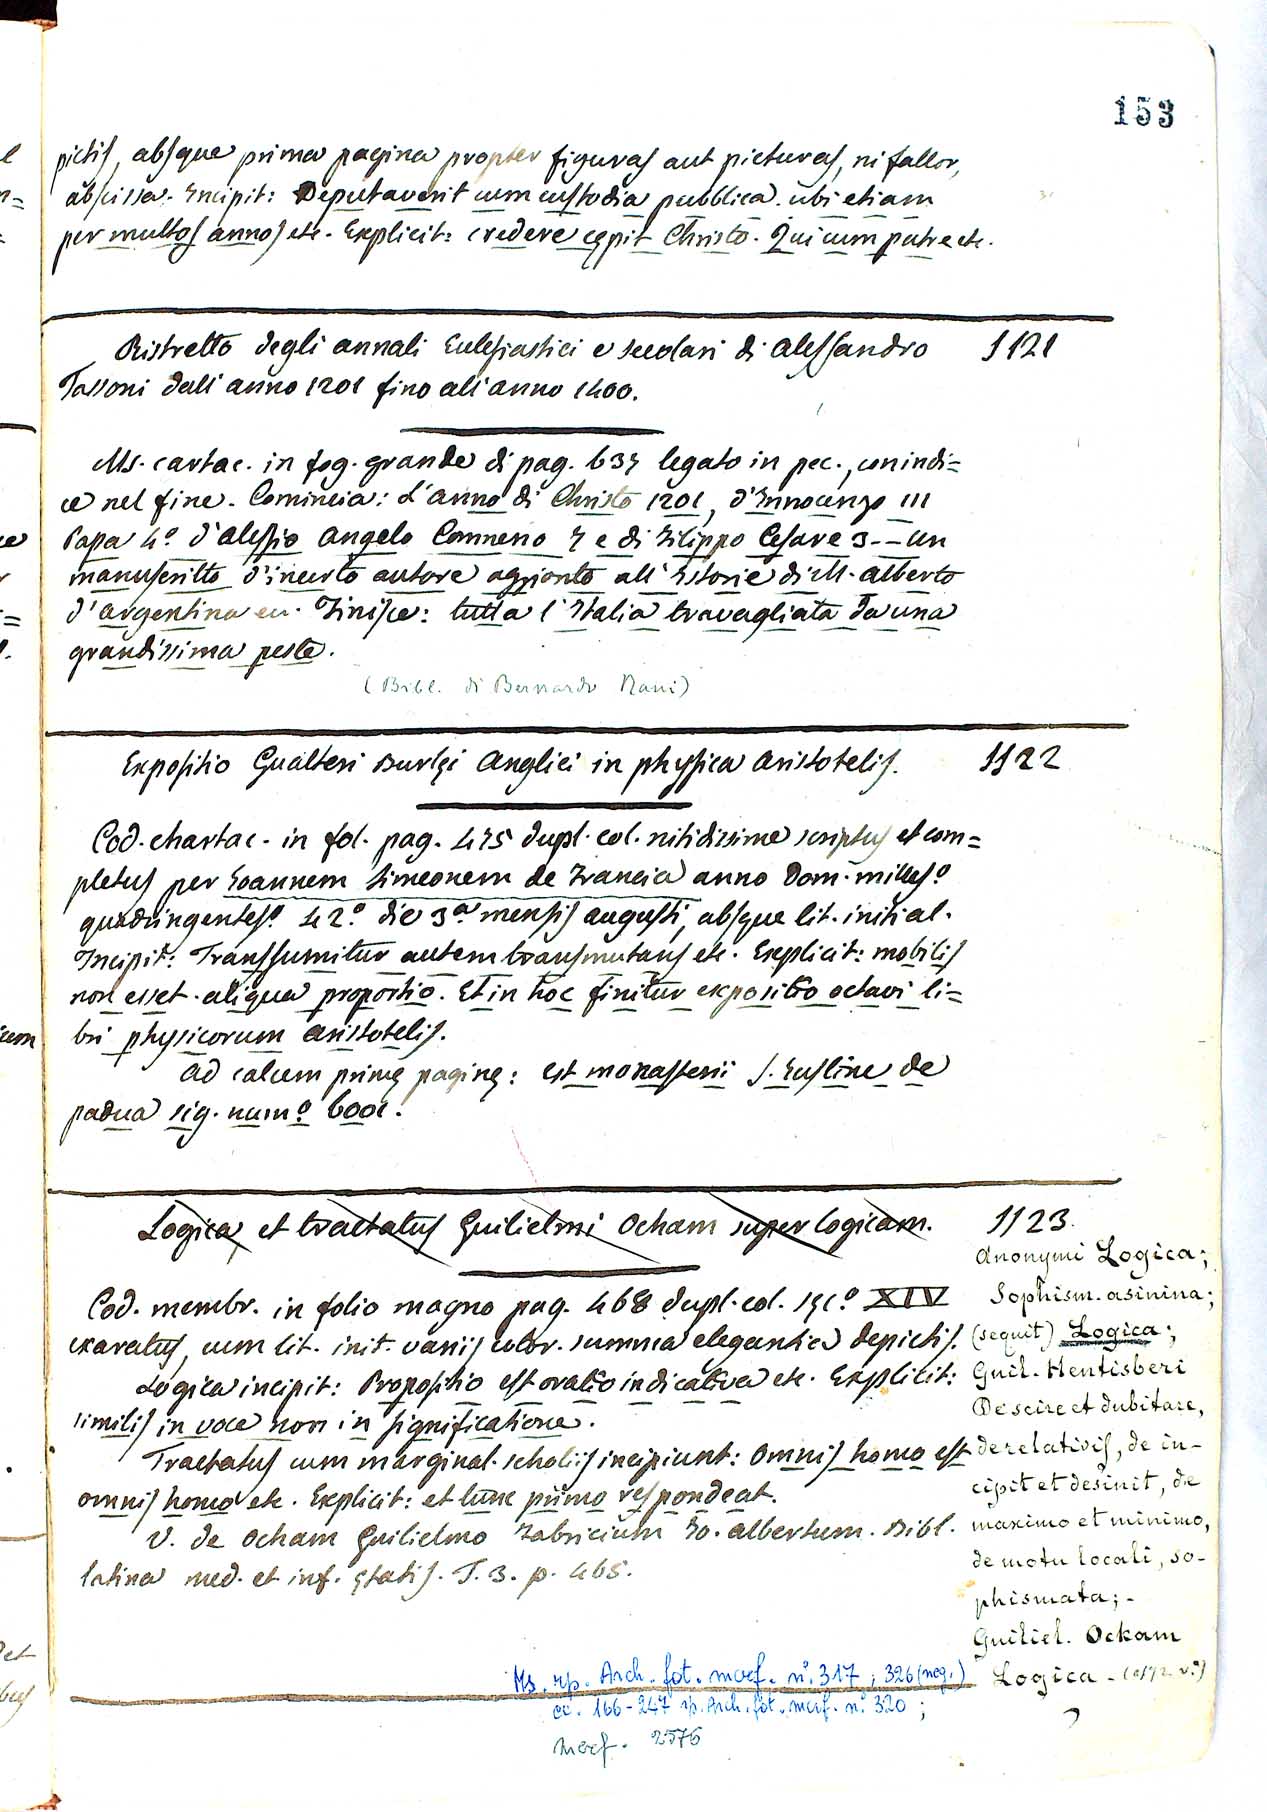 153
pictis, absque prima pagina propter figuras aut picturas, ni fallor,
abscissa. Incipit: Deputaverit cum custodia pubblica. ubi etiam
per multos annos etc. Explicit: credere cępit Christo. Qui cum patre etc.
Ristretto degli annali Eclesiastici e secolari di Alessandro 1121
Tassoni dall'anno 1201 fino all'anno 1400.
Ms. cartac. in fog. grande di pag. 637 legato in pec., con indi=
ce nel fine. Comincia: L'anno di Christo 1201, d'Innocenzo III
Papa 4.º d'Alessio Angelo Comneno 7 e di Filippo Cesare 3 -- un
manuscritto d'incerto autore aggionto all'Istorie di M. Alberto
d'Argentina ec. Finisce: tutta l'Italia travagliata da una
grandissima peste.
(Bibl. di Bernardo Nani)
Expositio Gualteri Burlęi Anglici in physica Aristotelis. 1122
Cod. chartac. in fol. pag. 475 dupl. col. nitidissime scriptus et com=
pletus per Joannem Simeonem de Francia anno Dom. milles.º
quadringentes.º 42.º die 3.ª mensis augusti, absque lit. initial.
Incipit: Transsumitur autem transmutans etc. Explicit: mobilis
non esset aliqua proportio. Et in hoc finitur expositio octavi li=
bri physicorum Aristotelis.
Ad calcem primę paginę: Est monasterii S. Justine de
padua sig. num.º 6001.
Logica et tractatus Guilielmi Ocham super logicam. 1123
Cod. membr. in folio magno pag. 468 dupl. col. sęc.º XIV
exaratus, cum lit. init. variis color. summa elegantia depictis.
Logica incipit: Propositio est oratio indicativa etc. Explicit:
similis in voce non in significatione.
Tractatus cum marginal. scholiis incipiunt: Omnis homo est
omnis homo etc. Explicit: et tunc primo respondeat.
V. de Ocham Guilielmo Fabricium Jo. Albertum. Bibl.
latina med. et inf. ętatis. T. 3. p. 465.
Anonymi Logica;
Sophism. asinina;
(sequit) Logica;
Guil. Hentisberi
De scire et dubitare,
de relativis, de in-
cipit et desinit, de
maximo et minimo,
de motu locali, so-
phismata; -
Guiliel. Ockam
Logica -
Ms. rip. Arch. fot. marf. n.º 317; 326 (neg.)
cc. 166-247 rip. Arch. fot. marf. n.º 320;
marf. 2576